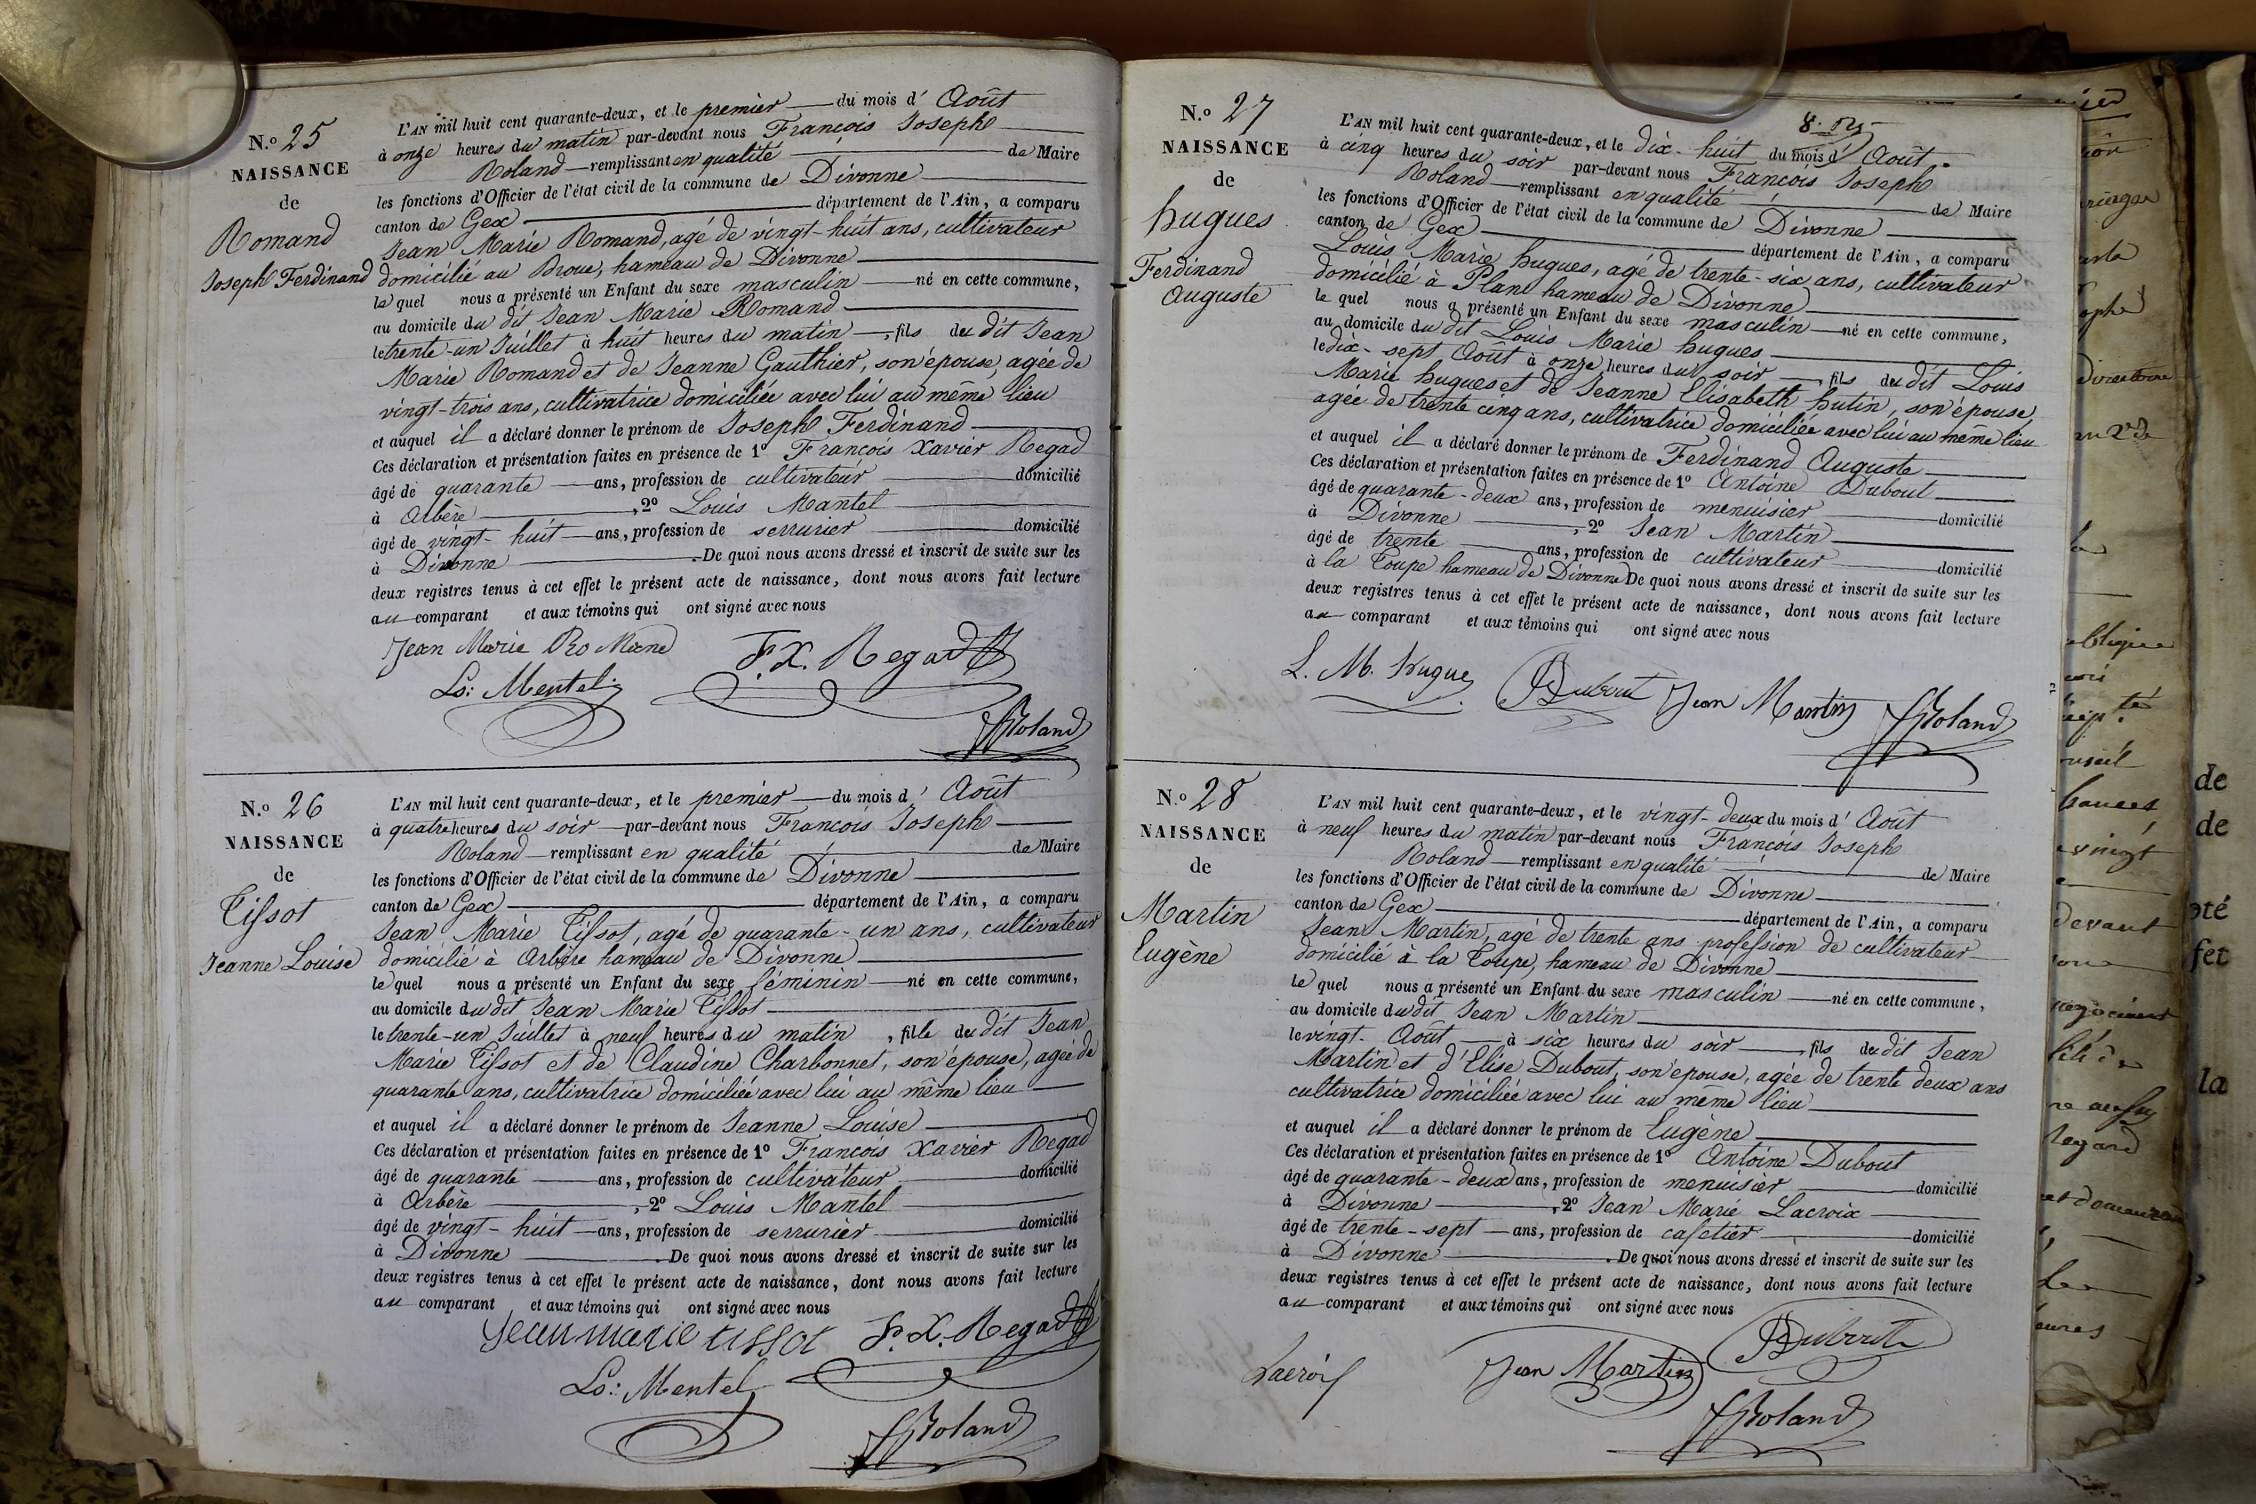 N.º 25
NAISSANCE
de
Romand
Joseph Ferdinand
L'AN mil huit cent quarante-deux, et le premier du mois d' Août
à onze heures du matin par-devant nous François Joseph
Roland remplissant en qualité de Maire
les fonctions d'Officier de l'état civil de la commune de Divonne
canton de Gex département de l'Ain, a comparu
Jean Marie Romand, agé de vingt-huit ans, cultivateur
domicilié au Broue, hameau de Divonne
le quel nous a présenté un Enfant du sexe masculin né en cette commune,
au domicile du dit Jean Marie Romand
le trente-un Juillet à huit heures du matin, fils du dit Jean
Marie Romand et de Jeanne Gauthier, son épouse, agée de
vingt-trois ans, cultivatrice domiciliée avec lui au même lieu
et auquel il a déclaré donner le prénom de Joseph Ferdinand
Ces déclaration et présentation faites en présence de 1º François Xavier Regad
âgé de quarante ans, profession de cultivateur domicilié
à Arbère, 2º Louis Mantel
âgé de vingt-huit ans, profession de serrurier domicilié
à Divonne. De quoi nous avons dressé et inscrit de suite sur les
deux registres tenus à cet effet le présent acte de naissance, dont nous avons fait lecture
au comparant et aux témoins qui ont signé avec nous
Jean Marie Romand F. X. Regad
Ls: Mentel
Roland
N.º 26
NAISSANCE
de
Tissot
Jeanne Louise
L'AN mil huit cent quarante-deux, et le premier du mois d' Août
à quatre heures du soir par-devant nous François Joseph
Roland remplissant en qualité de Maire
les fonctions d'Officier de l'état civil de la commune de Divonne
canton de Gex département de l'Ain, a comparu
Jean Marie Tissot, agé de quarante-un ans, cultivateur
domicilié à Arbère hameau de Divonne
le quel nous a présenté un Enfant du sexe féminin né en cette commune,
au domicile du dit Jean Marie Tissot
le trente-un Juillet à neuf heures du matin, fille du dit Jean
Marie Tissot et de Claudine Charbonnet, son épouse, agée de
quarante ans, cultivatrice domiciliée avec lui au même lieu
et auquel il a déclaré donner le prénom de Jeanne Louise
Ces déclaration et présentation faites en présence de 1º François Xavier Regad
âgé de quarante ans, profession de cultivateur domicilié
à Arbère, 2º Louis Mantel
âgé de vingt-huit ans, profession de serrurier domicilié
à Divonne. De quoi nous avons dressé et inscrit de suite sur les
deux registres tenus à cet effet le présent acte de naissance, dont nous avons fait lecture
au comparant et aux témoins qui ont signé avec nous
Jean marie tissot F. X. Regad
Ls: Mentel
Roland
N.º 27
NAISSANCE
de
hugues
Ferdinand
Auguste
L'AN mil huit cent quarante-deux, et le dix-huit du mois d' Août
à cinq heures du soir par-devant nous François Joseph
Roland remplissant en qualité de Maire
les fonctions d'Officier de l'état civil de la commune de Divonne
canton de Gex département de l'Ain, a comparu
Louis Marie hugues, agé de trente-six ans, cultivateur
domicilié à Plan hameau de Divonne
le quel nous a présenté un Enfant du sexe masculin né en cette commune,
au domicile du dit Louis Marie hugues
le dix-sept Août à onze heures du soir, fils du dit Louis
Marie hugues et de Jeanne Elisabeth hutin, son épouse,
agée de trente cinq ans, cultivatrice domiciliée avec lui au même lieu
et auquel il a déclaré donner le prénom de Ferdinand Auguste
Ces déclaration et présentation faites en présence de 1º Antoine Dubout
âgé de quarante-deux ans, profession de menuisier domicilié
à Divonne, 2º Jean Martin
âgé de trente ans, profession de cultivateur domicilié
à la Toupe hameau de Divonne De quoi nous avons dressé et inscrit de suite sur les
deux registres tenus à cet effet le présent acte de naissance, dont nous avons fait lecture
au comparant et aux témoins qui ont signé avec nous
L. M. Hugue Dubout Jean Martin Roland
N.º 28
NAISSANCE
de
Martin
Eugène
L'AN mil huit cent quarante-deux, et le vingt-deux du mois d' Août
à neuf heures du matin par-devant nous François Joseph
Roland remplissant en qualité de Maire
les fonctions d'Officier de l'état civil de la commune de Divonne
canton de Gex département de l'Ain, a comparu
Jean Martin, agé de trente ans profession de cultivateur
domicilié à la Toupe, hameau de Divonne
le quel nous a présenté un Enfant du sexe masculin né en cette commune,
au domicile du dit Jean Martin
le vingt Août à six heures du soir, fils du dit Jean
Martin et d'Elise Dubout, son épouse, agée de trente deux ans
cultivatrice domiciliée avec lui au même lieu
et auquel il a déclaré donner le prénom de Eugène
Ces déclaration et présentation faites en présence de 1º Antoine Dubout
âgé de quarante-deux ans, profession de menuisier domicilié
à Divonne, 2º Jean Marie Lacroix
âgé de trente-sept ans, profession de cafetier domicilié
à Divonne. De quoi nous avons dressé et inscrit de suite sur les
deux registres tenus à cet effet le présent acte de naissance, dont nous avons fait lecture
au comparant et aux témoins qui ont signé avec nous
Lacroix Jean Martin Dubout
Roland
de
de
fet
la